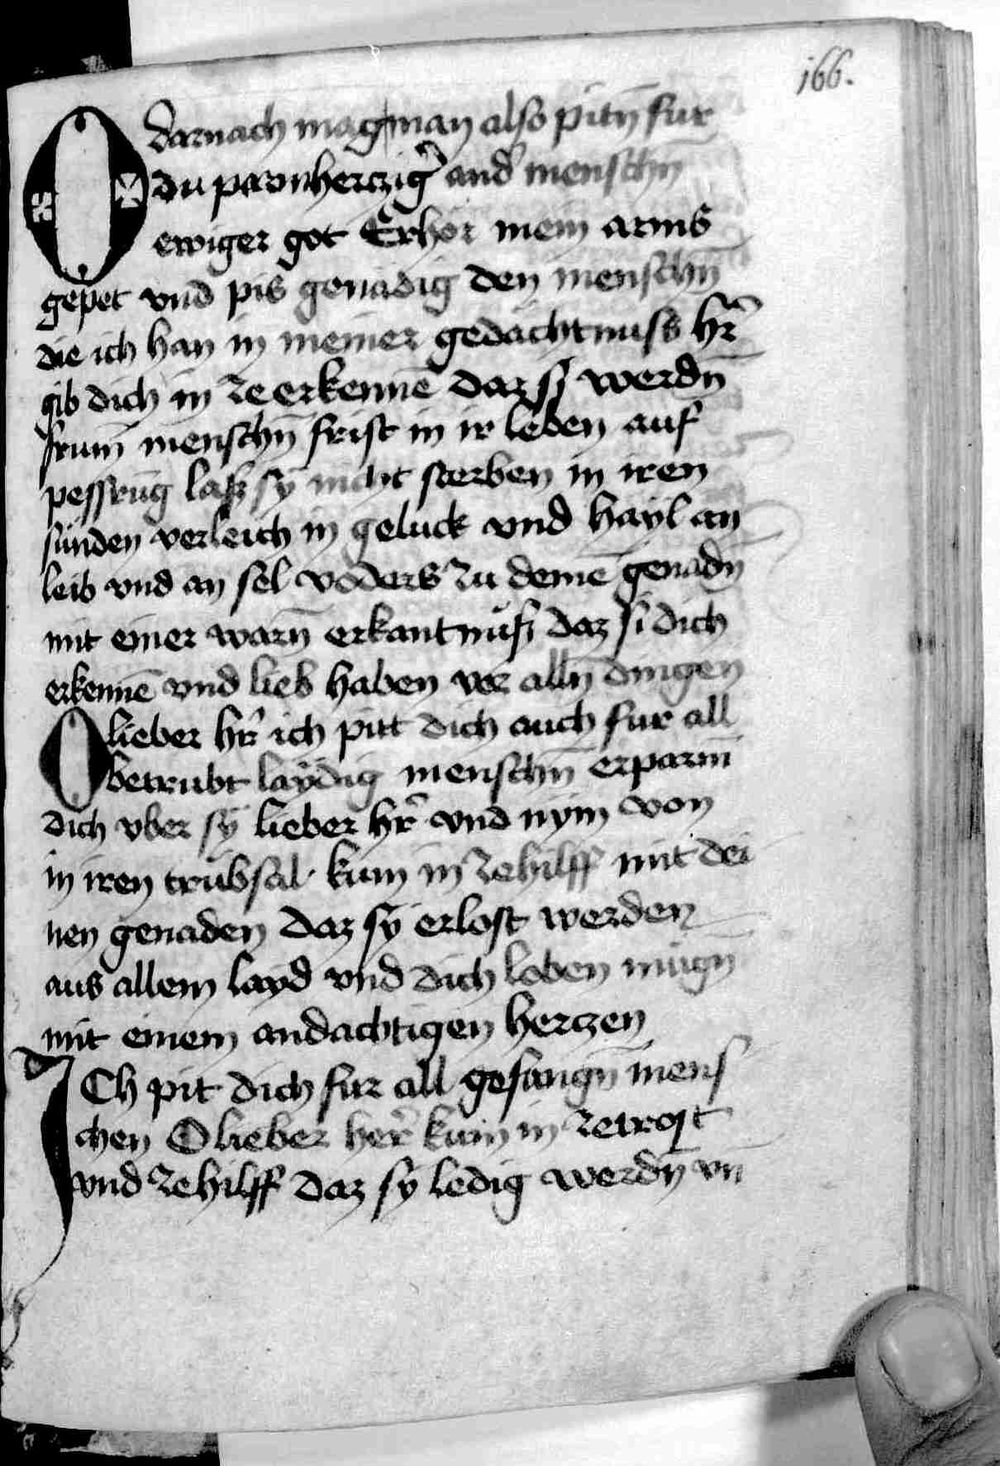 166.
Darnach mag man also pitn̄ fur
O du parmhercziḡ and̄ menschn̄
ewiger got Erhör mein arms
gepet vnd pis genädig den menschn̄
die ich han in meiner gedächtnuss hr̄
gib dich in ze erkennē daz sy werdn̄
frum̄ menschn̄ frist in ir leben auf
pessrūg laß sy nicht sterben in iren
sünden verleich in geluck vnd hayl an
leib vnd an sel voders zu deinē genadn̄
mit einer warn̄ erkantnuß daz si dich
erkennē vnd lieb haben vor alln̄ dingen
O lieber hr̄ ich pitt dich auch fur all
betrubt laydig menschn̄ erparm̄
dich vber sy lieber hr̄ vnd nym von
in iren trübsal kum in zehilff mit dei
nen genaden daz sy erlost werden
aus allem layd vnd dich loben mügn̄
mit einem andachtigen herczen
ICh pit dich fur all gefangn̄ mens
chen O lieber her̄ kum in zetrost
vnd zehilff daz sy ledig werdn̄ vn̄